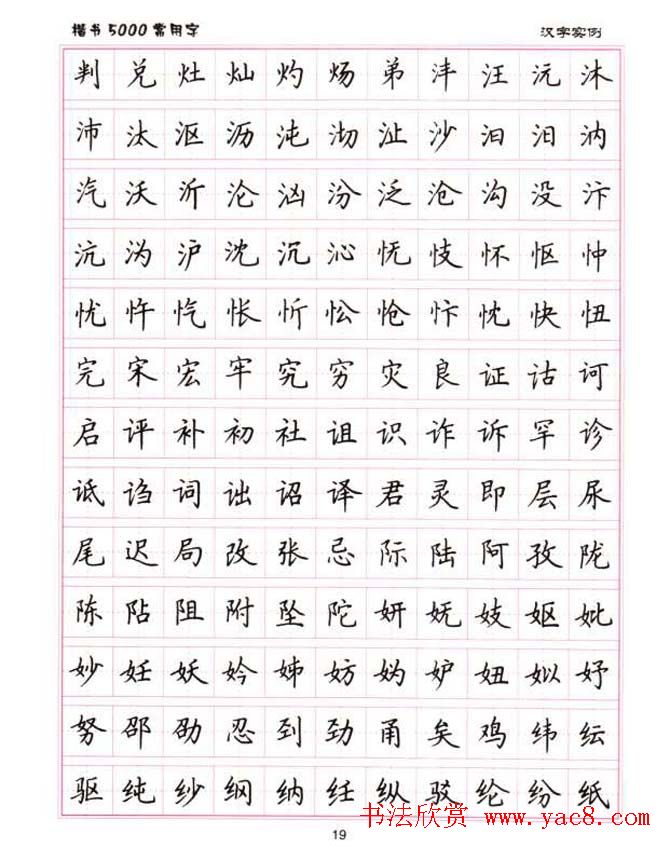 楷书5000常用字 汉字实例
判兑灶灿灼炀弟沣汪沅沐
沛汰沤沥沌沏沚沙汩汨汭
汽沃沂沦汹汾泛沧沟没汴
沆沩沪沈沉沁怃忮怀怄忡
忧忤忾怅忻忪怆忭忱快忸
完宋宏牢究穷灾良证诂诃
启评补初社诅识诈诉罕诊
诋诌词诎诏译君灵即层尿
尾迟局改张忌际陆阿孜陇
陈阽阻附坠陀妍妩妓妪妣
妙妊妖妗姊妨妫妒妞姒妤
努邵劭忍刭劲甬矣鸡纬纭
驱纯纱纲纳纴纵驳纶纷纸
书法欣赏 www.yac8.com
19